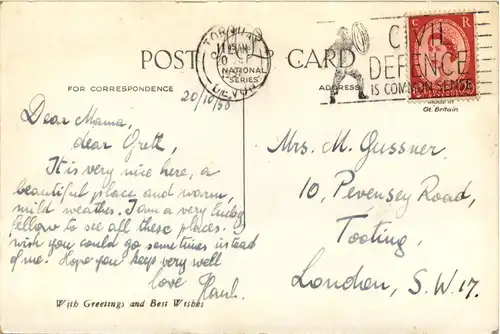 POST CARD
TORQUAY
NATIONAL
SERIES
DEVON
CIVIL
DEFENCE
IS COMMON SENSE
E R
made in
Gt. Britain
FOR CORRESPONDENCE
ADDRESS
20/10/56
Dear Mama,
dear Greth,
It is very nice here, a
beautiful place and warm,
mild weather. I am a very lucky
fellow to see all these places.
wish you could go sometimes instead
of me. Hope you keep very well
love
With Greetings and Best Wishes
Mrs. M. Gussner.
10, Pevensey Road,
Tooting,
London, S.W.17.